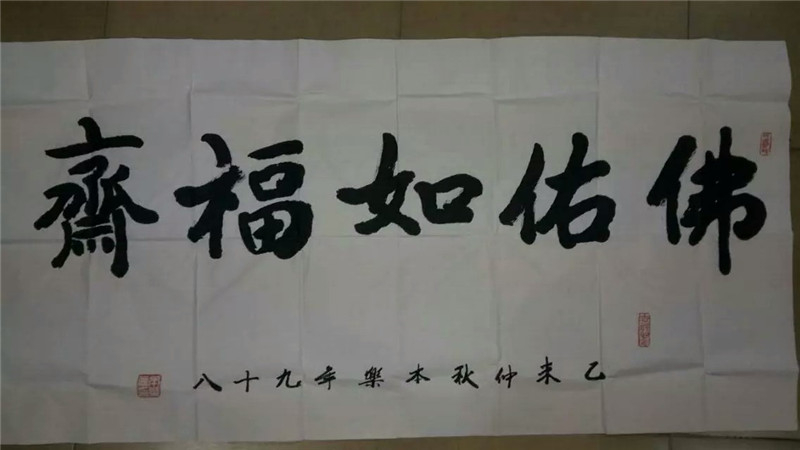 佛佑如福齋
乙未仲秋本樂年九十八